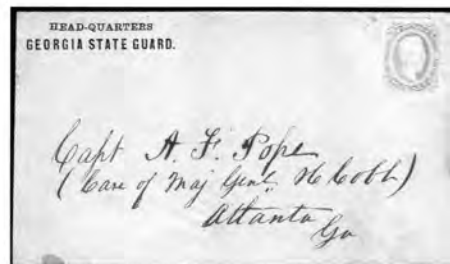 HEAD-QUARTERS
GEORGIA STATE GUARD.
Capt A. F. Pope
(Care of Maj Genl. H Cobb)
Atlanta
Ga